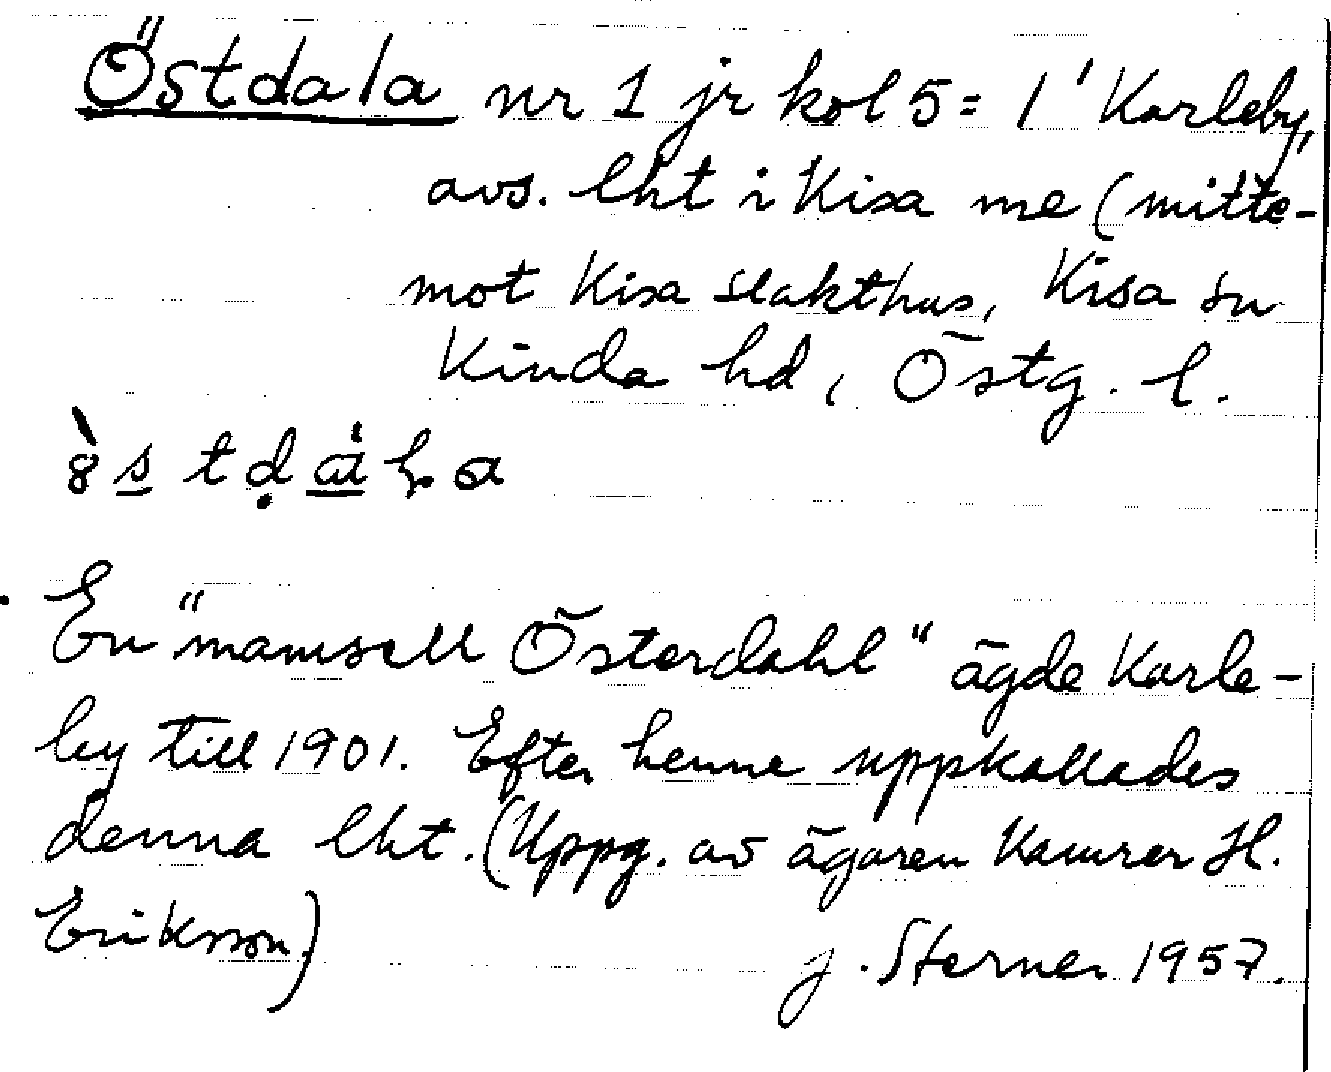 Östdala nr 1 jr kol 5 = 1' Karleby,
avs. lht i Kisa me (mitte-
mot Kisa slakthus, Kisa sn
Kinda hd, Östg. l.
En "mamsell Österdahl" ägde Karle-
by till 1901. Efter henne uppkallades
denna lht. (Uppg. av ägaren Kamrer H.
Eriksson)
J. Sterner 1957.